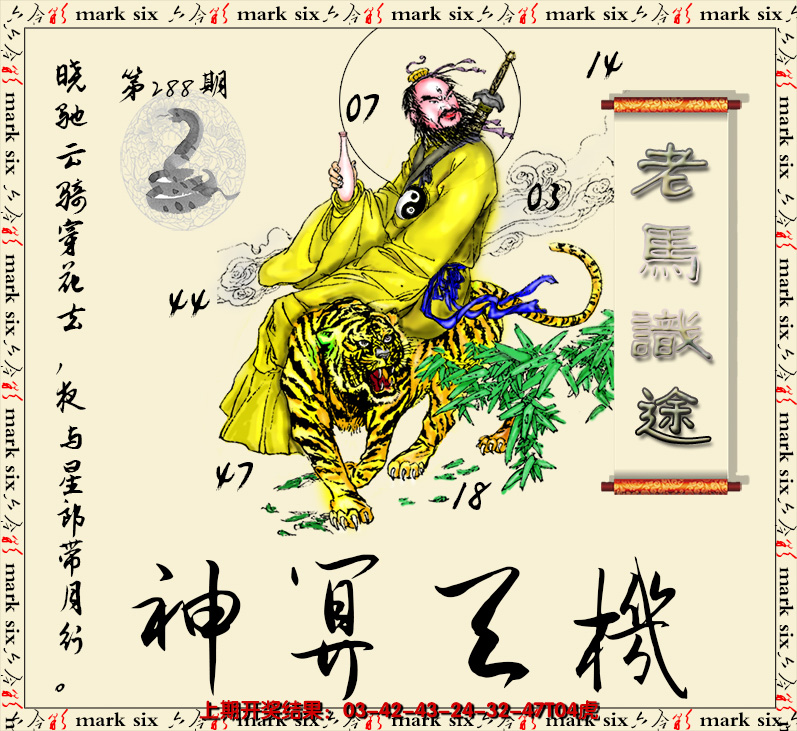 六合彩 mark six 六合彩 mark six 六合彩 mark six 六合彩 mark six 六合彩 mark six 六合彩
第288期
晓驰云骑穿花去，夜与星郎带月行。
07
14
03
44
47
18
老馬識途
神算天機
上期开奖结果：03-42-43-24-32-47T04虎
mark six 六合彩 mark six 六合彩 mark six 六合彩 mark six 六合彩 mark six